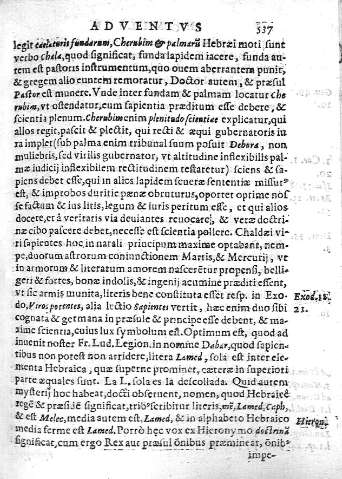 ADVENTVS 337
legit cælaturis fundarum, Cherubim & palmarũ Hebræi moti sunt
verbo Chela, quod significat, funda lapidem iacere, funda au-
tem est pastoris instrumentum, quo ouem aberrantem punit,
& gregem alio euntem remoratur, Doctor autem, & præsul
Pastor est munere. Vnde inter fundam & palmam locatur Che
rubim, vt ostendatur, eum sapientia præditum esse debere, &
scientia plenum. Cherubim enim plenitudo scientiæ explicatur, qui
allos regit, pascit & plectit, qui recti & æqui gubernatoris iu
ra implet (sub palma enim tribunal suum posuit Debora, non
muliebris, sed virilis gubernator, vt altitudine inflexibilis pal-
mæ iudicij inflexibilem rectitudinem testaretur) sciens & sa-
piens debet esse, qui in alios lapidem seueræ sententiæ missur9
est, & improbos duritie pœnæ obruturus, oportet optime nos-
se factum & ius litis, legum & iuris peritum esse, et qui alios
docere, et à veritatis via deuiantes reuocare, & veræ doctri-
næ cibo pascere debet, necesse est scientia pollere. Chaldæi vi-
ri sapientes hoc in natali principum maxime optabant, nem-
pe, duorum astrorum coniunctionem Martis, & Mercurij, vt
in armorum & literatum amorem nasceretur propensi, belli-
geri & fortes, bonæ indolis, & ingenij acumine præditi essent,
vt sic armis munita, literis bene constituta esset resp. in Exo-
do, Viros potentes, alia lectio Sapientes vertit, hæc enim duo sibi
cognata & germana in præsule & principe esse debent, & ma-
xime scientia, cuius lux symbolum est. Optimum est, quod ad
inuenit noster Fr. Lud. Legion. in nomine Dabar, quod sapien-
tibus non potest non arridere, litera Lamed, sola est inter ele-
menta Hebraica, quæ superne prominet, cæteræ in superiori
parte æquales sunt. La L, sola es la descollada. Quid autem
mysterij hoc habeat, docti obseruent, nomen, quod Hebraicè
regẽ & præsidẽ significat, trib9 scribitur literis, mẽ, Lamed, Caph,
& est Melec, media autem est Lamed, & in alphabeto Hebraico
media ferme est Lamed. Porrò hęc vox ex Hieronymo doctrinã
significat, cum ergo Rex aut præsul õnibus præmineat, õnib9
impe-
Exod. 18.
21.
Hieron.